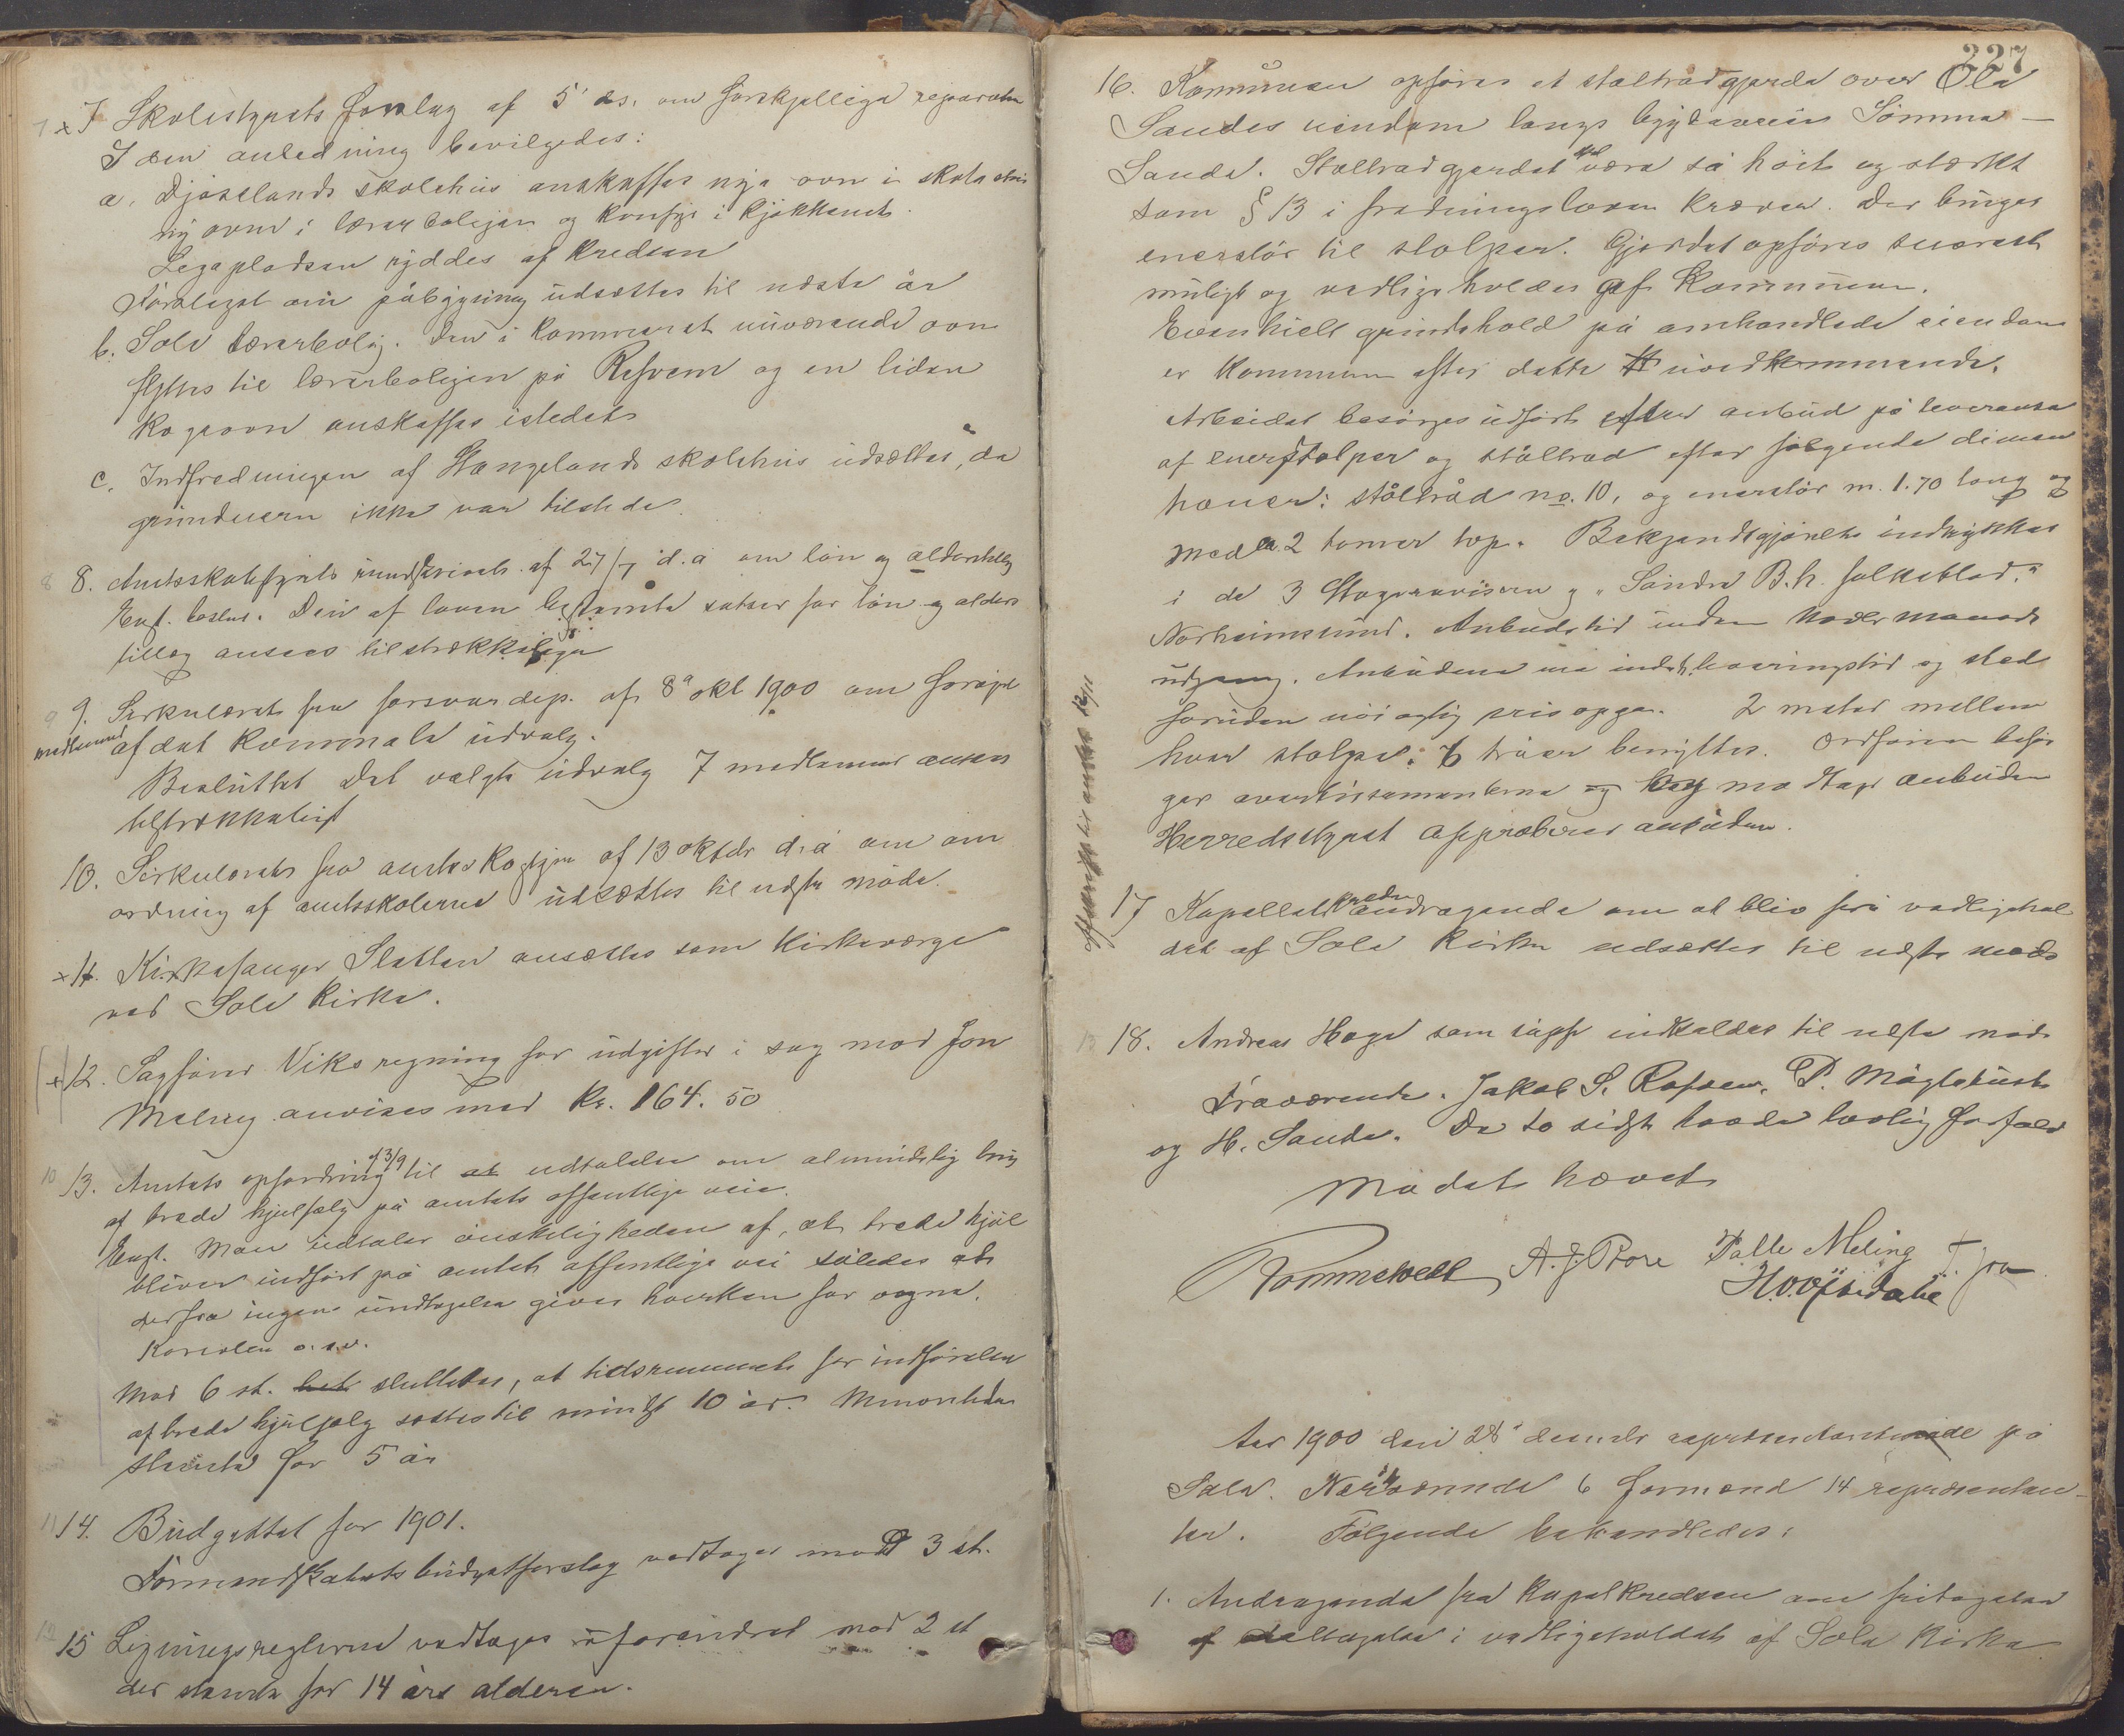 7 Skolestyrets forslag af 5' ds. om forskjellige reparation
I den anledning bevilgedes:
a. Djøseland skolehus anskaffes nye ovn i skolestuen
ny ovn i lærerboligen og komfyr i kjøkkenet.
Legepladsen ryddes af kredsen
Forslaget om påbygning udsættes til næste år
b. Sole lærerbolig. Den i kammerset nuværende ovn
flyttes til lærerboligen på Refsem og en liden
kogeovn anskaffes istedet
c. Indfredningen af Stangeland skolehus udsættes, da
grundeieren ikke var tilstede.
8 8. Amtsskolestyrets rundskrivels. af 27/7 d. a om løn og alderstillæg
Enst. beslut. Den af loven bestemte satser for løn og alders
tillæg ansees tilstrækkelige
9 9. Sirkulæret fra forsvar dep. af 8de okt 1900 om forøgel
medlemmer af det kommunale udvalg.
Besluttet Det valgte udvalg 7 medlemmer ansees
tilstrækkeligt
10. Sirkulæret fra amtsskolestyre af 13 oktbr d. å om om
ordning af amtsskolerne udsættes til næste møde.
x 11. Kirkesanger Sletten ansættes som kirkeværge
ved Sole kirke.
x 12. Sagfører Viks regning for udgifter i sag mod Jon
Meling anvises med kr. 164. 50
10 13. Amtets opfordring af 3/9 til at udtalelse om almindelig brug
af brede hjulfælg på amtets offentlige veie.
Enst. Man udtaler ønskeligheden af, at brede hjul
bliver indført på amtets offentlige vei således at
derfra ingen undtagelse gives hverken for vogne,
karioler o. s. v.
Mod 6 st. besluttedes, at tidsrummet for indførelse
af brede hjulfælg sættes til mindst 10 år. Minoriteten
stemte for 5 år
11 14. Budgettet for 1901.
Formandskabets budgetforslag vedtoges mod 3 st.
12 15 Ligningsreglerne vedtages uforandret mod 2 st
der stemte for 14 års alderen.
227
16. Kommunen opføres et ståltrådgjerde over Ola
Sandes eiendom langs bygdeveien Sømme-
Sande. Ståltrådgjerdet skal være så høit og stærkt
som § 13 i fredningsloven kræver. Der bruges
enerstør til stolper. Gjerdet opføres snarest
muligt og vedligeholdes af kommunen.
Eventuelt grindehold på omhandlede eiendom
er kommunen efter dette uvedkommende.
Arbeidet besørges udført efter anbud på leveranse
af enerstolper og ståltråd efter følgende dimen
hauer: ståltråd no. 10, og enerstør m. 1.70 lang og
med 2 tommer top. Bekjendtgjørelse indrykkes
i de 3 Stavgeraviserne og "Søndre B. h. folkeblad,"
Norheimsund. Anbudstid inden novbr måneds
udgang. Anbudene må indeh. leveringstid og sted
foruden nøiagtig prisopgave. 2 meter mellem
hver stolpe. 6 tråer benyttes. Ordføren besør
ger avertissementerne og modtager anbuden
Herredsstyret approberer anbuden.
17 Kapellets kreds andragende om at bliv fri vedligehol
det af Sole kirke udsættes til næste møde
18. Andreas Hoge som supp indkaldes til næste møde
Fraværende. Jakob S. Refsem, P. Møglebust
og H. Sande. De to sidst havde lovlig forfald
Mødet hævet
Rommetvedt A. J. Rore Palle Meling T. Jon
Aar 1900 den 28de decmbr repræsentantmøde på
Sole. Nærværende 6 formænd 14 repræsentan-
ter. Følgende behandledes:
1. Andragende fra kapelkredsen om fritagelse
af deltagelse i vedligeholdet af Sole kirke